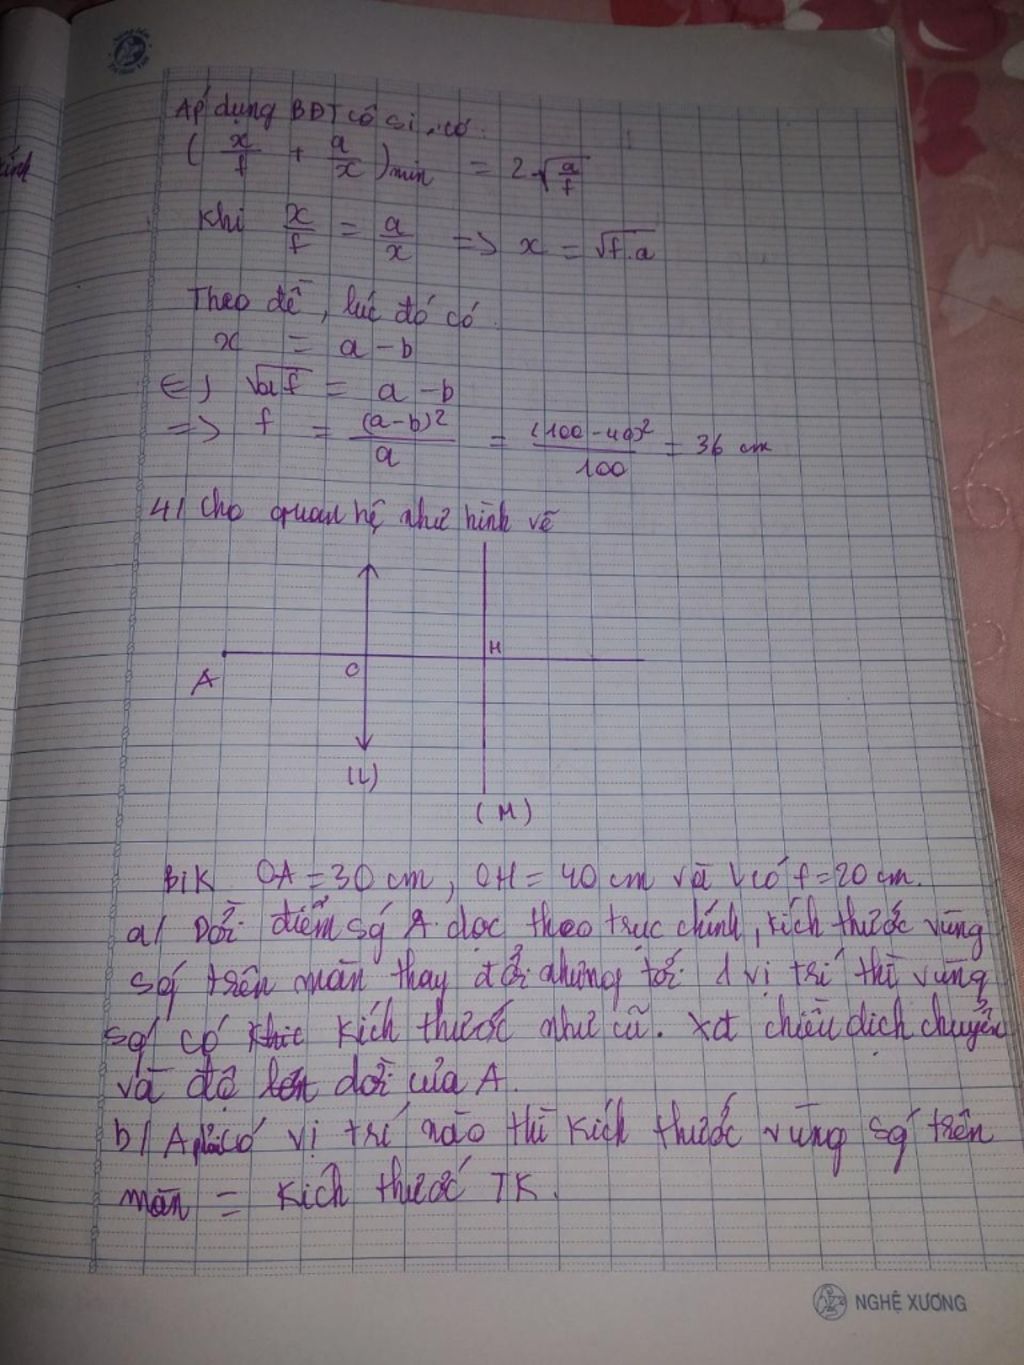 Áp dụng BĐT cô si, có.
( x/f + a/x )min = 2√(a/f)
Khi x/f = a/x => x = √f.a
Theo đề, lúc đó có
x = a - b
<=> √af = a - b
=> f = (a-b)²/a = (100-40)²/100 = 36 cm
4/ Cho quan hệ như hình vẽ
A O H
(L)
(M)
Bik OA = 30 cm, OH = 40 cm và L có f = 20 cm.
a/ Dời điểm sg A dọc theo trục chính, kích thước vùng
sg trên màn thay đổi nhưng tới 1 vị trí thì vùng
sg có kích thước như cũ. Xđ chiều dịch chuyển
và độ dời của A.
b/ A phải có vị trí nào thì kích thước vùng sg trên
màn = kích thước TK.
NGHỆ XƯƠNG